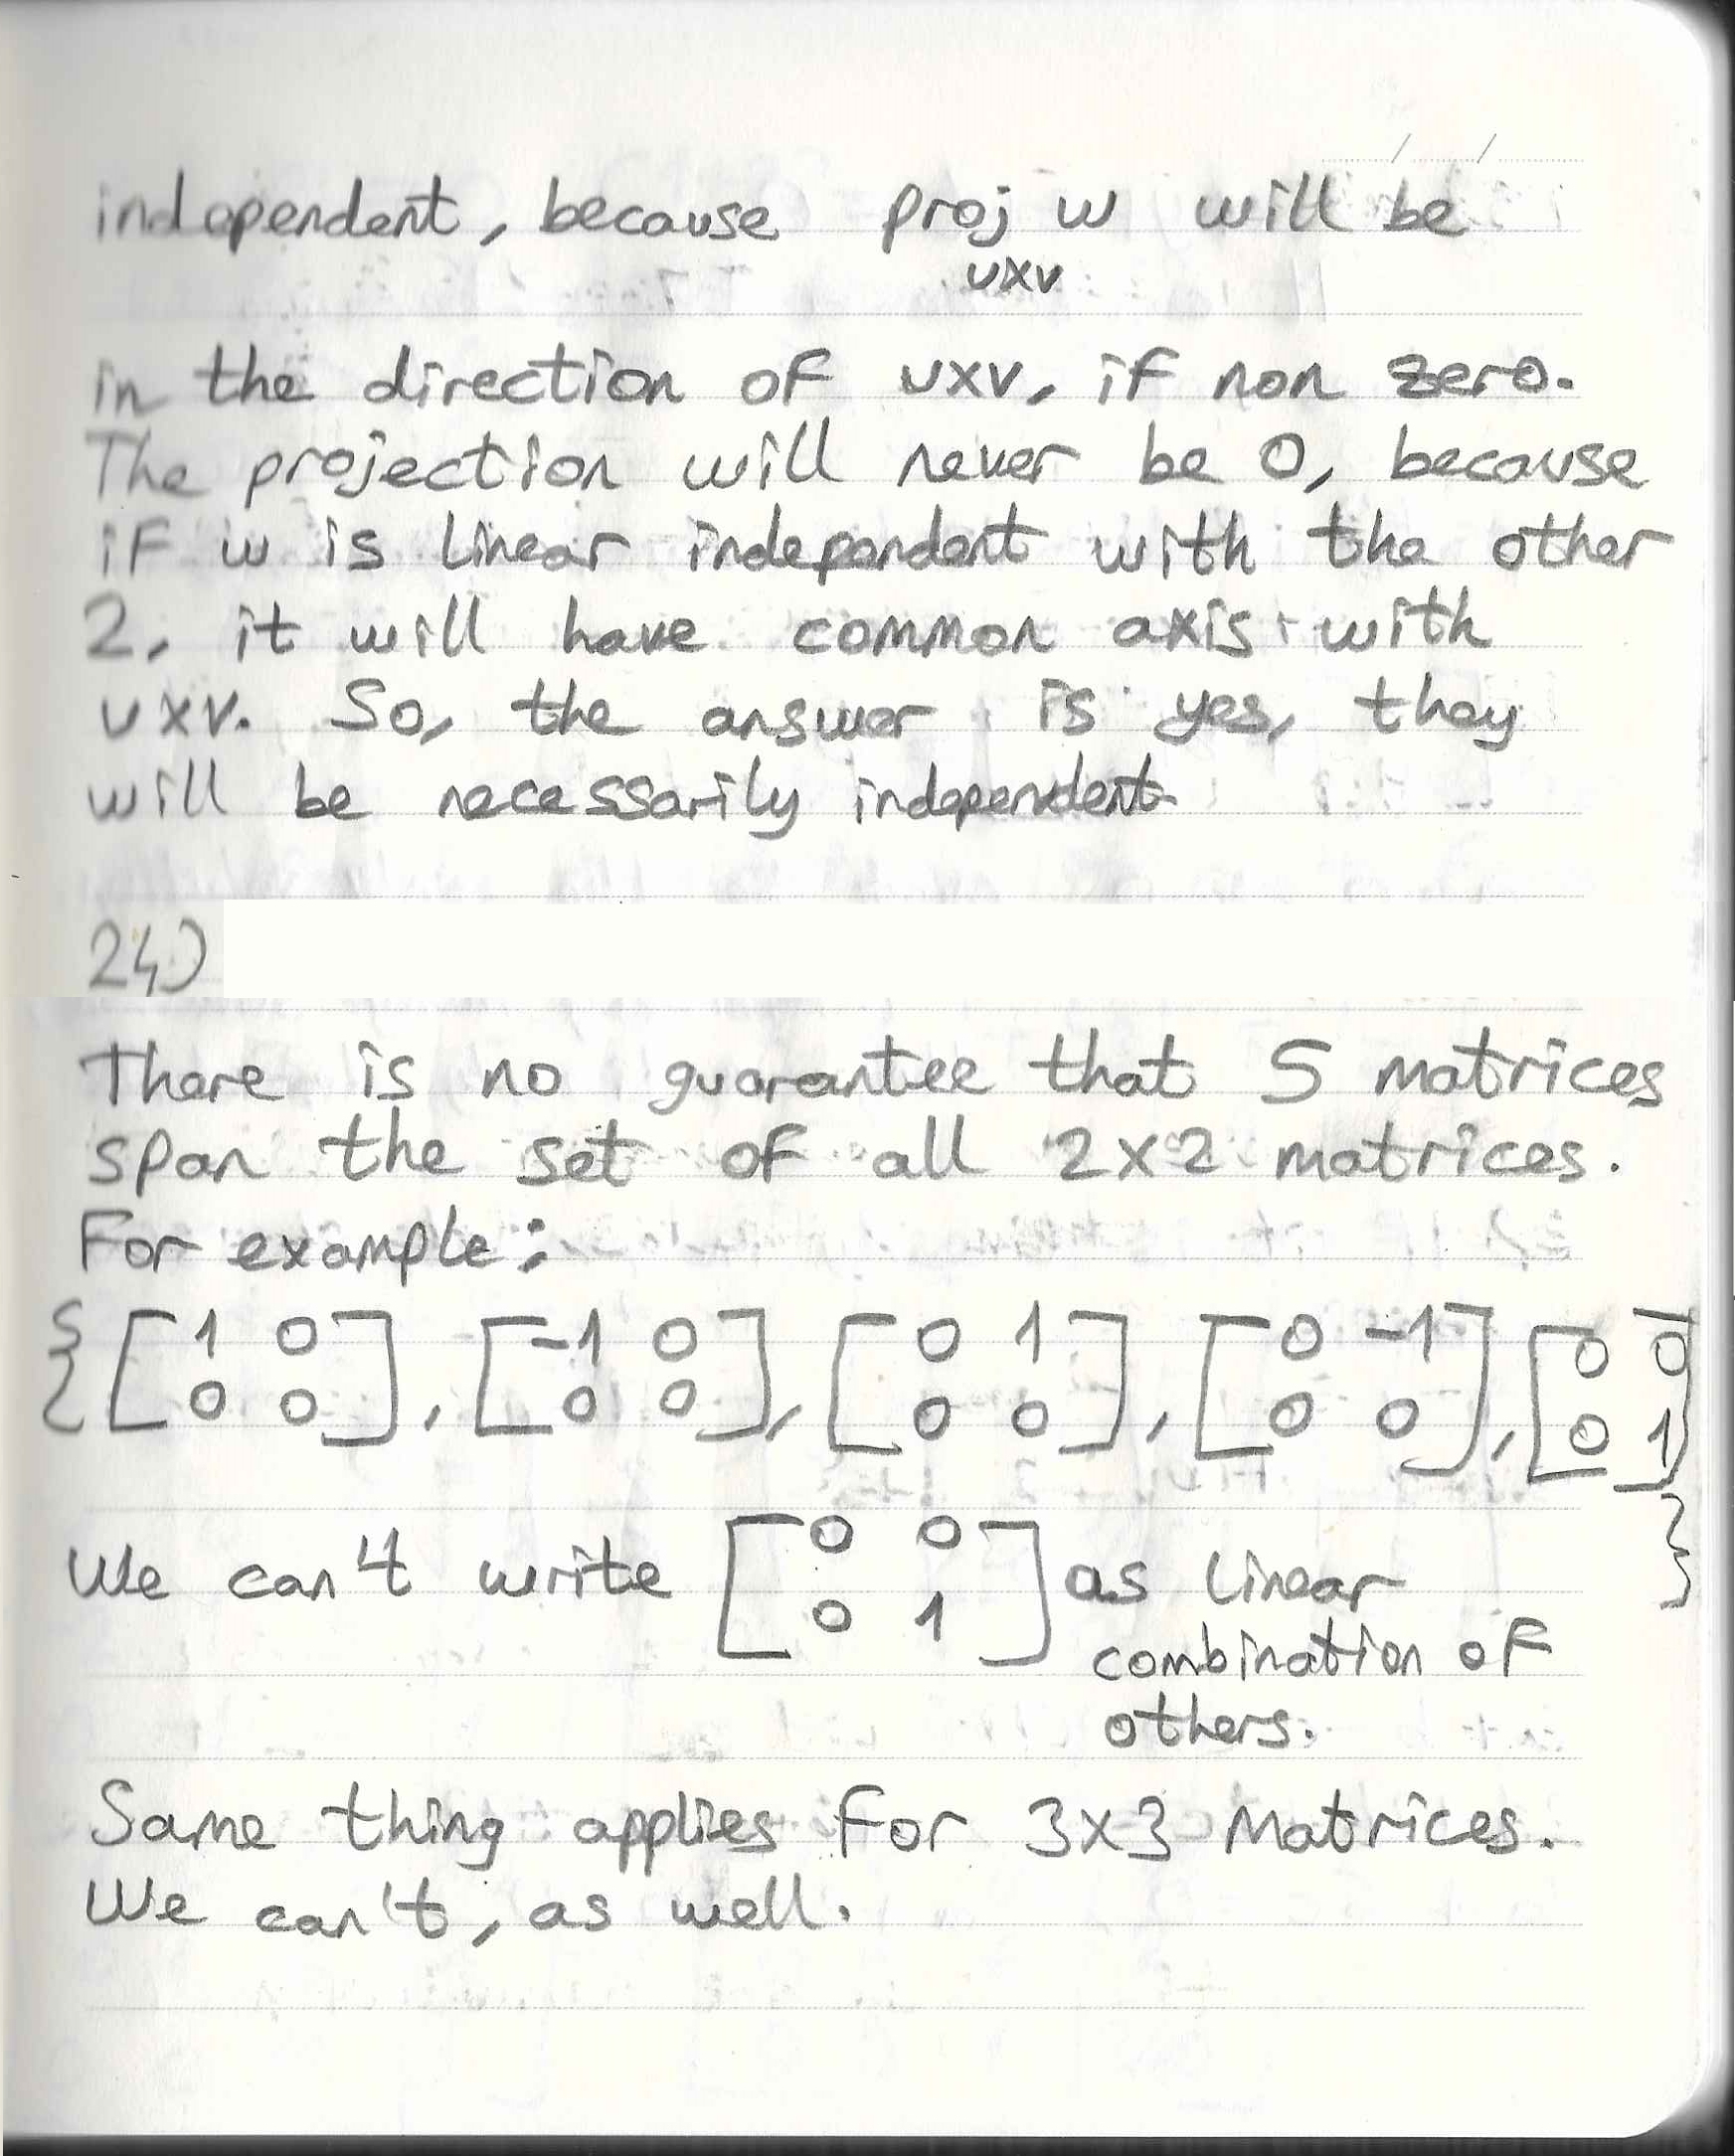 independent, because proj w will be
uxv
in the direction of uxv, if non zero.
The projection will never be 0, because
if w is linear independent with the other
2, it will have common axis with
uxv. So, the answer is yes, they
will be necessarily independent
24)
There is no guarantee that 5 matrices
span the set of all 2x2 matrices.
For example:
{ [ 1 0 ], [ -1 0 ], [ 0 1 ], [ 0 -1 ], [ 0 0 ]
[ 0 0 ] [ 0 0 ] [ 0 0 ] [ 0 0 ] [ 0 1 ] }
We can't write [ 0 0 ] as linear
[ 0 1 ] combination of
others.
Same thing applies for 3x3 Matrices.
We can't, as well.